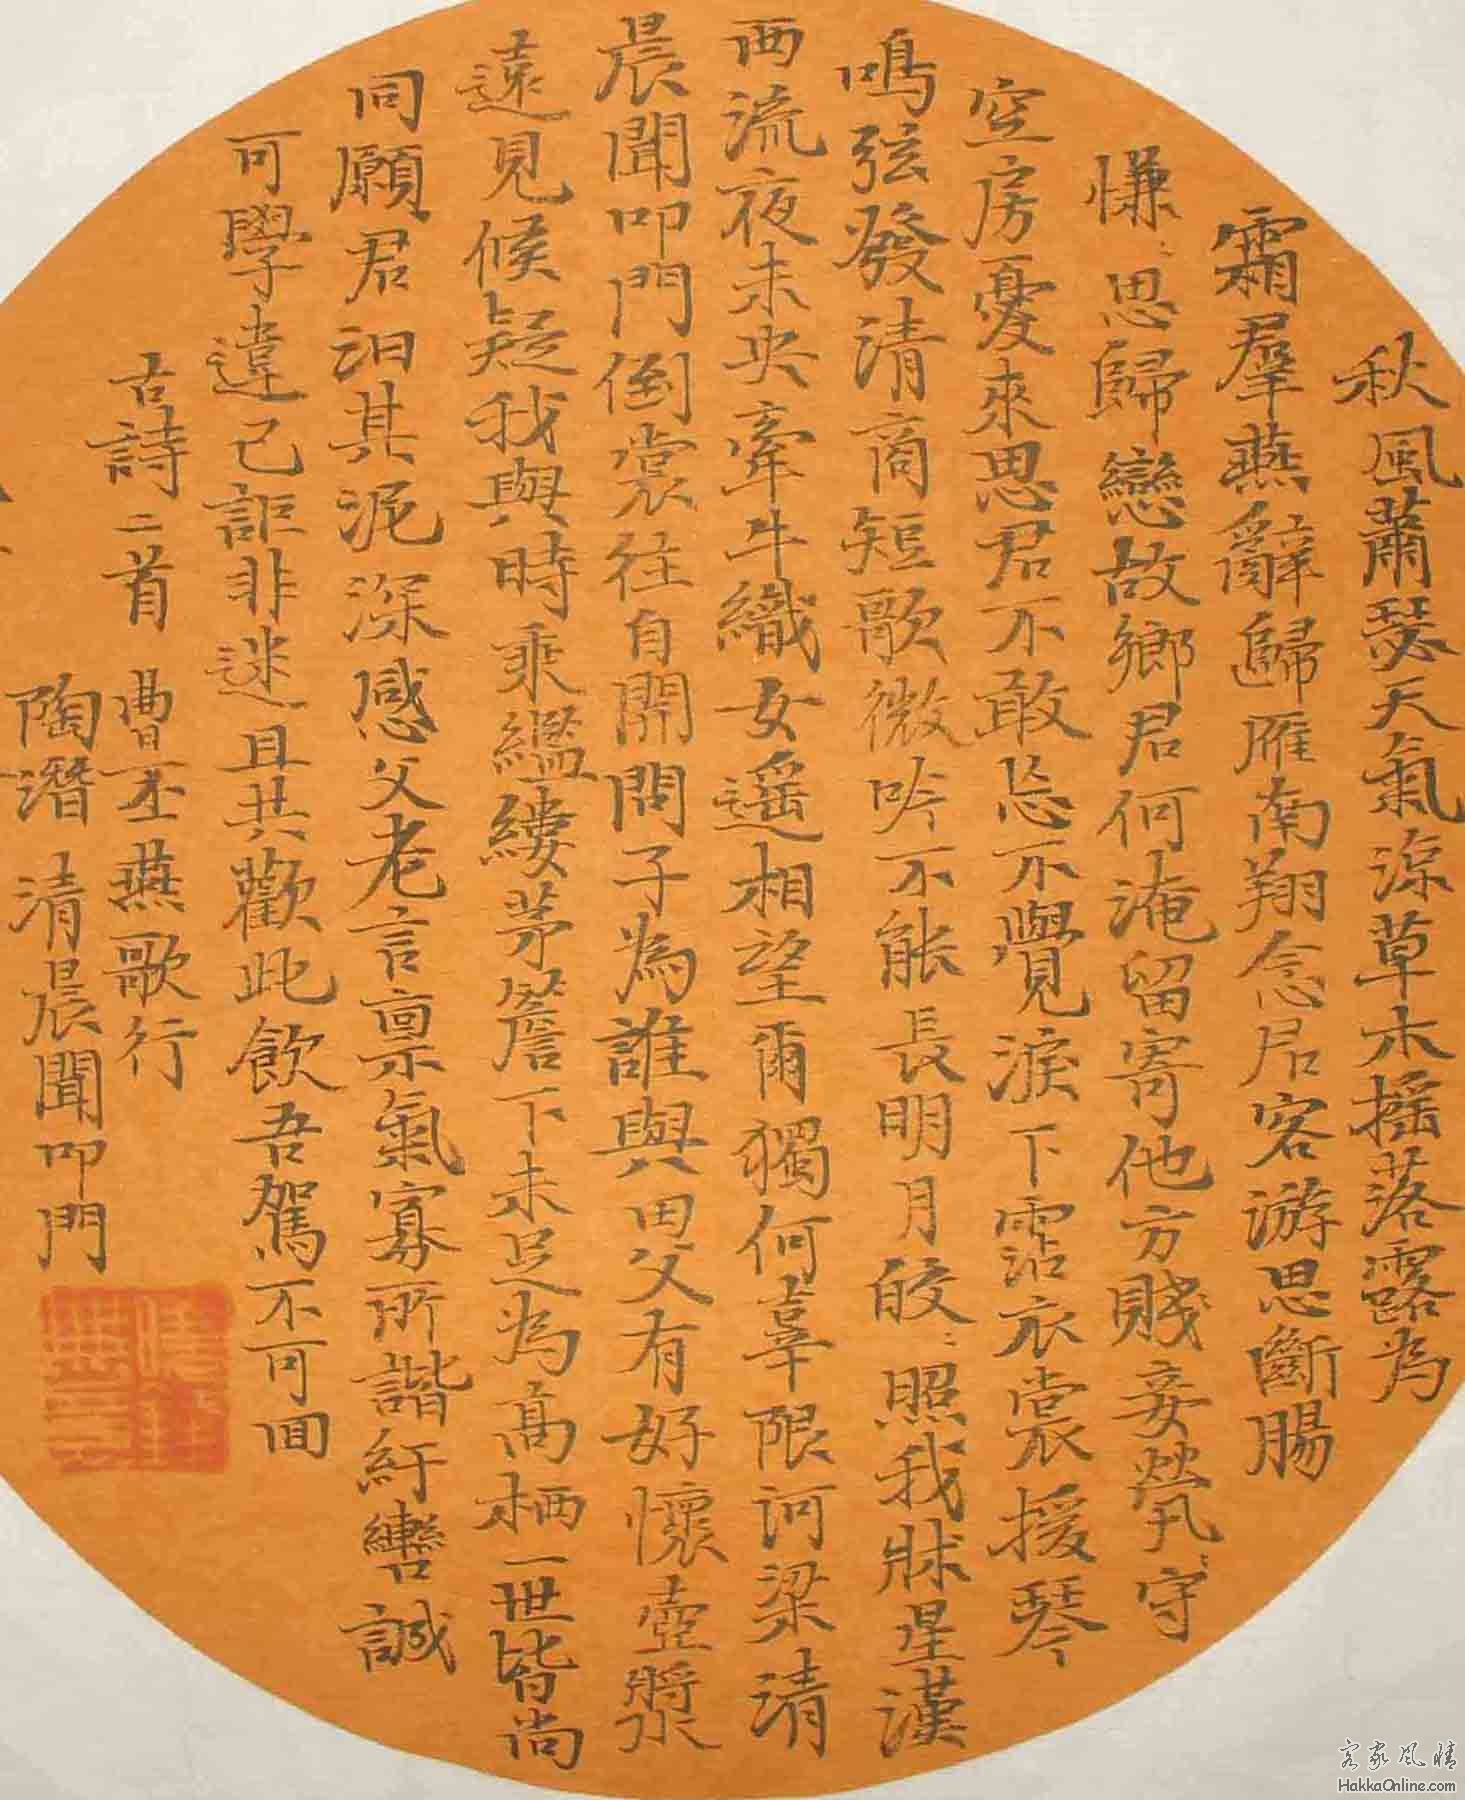 秋風蕭瑟天氣涼草木搖落露為
霜羣燕辭歸雁南翔念君客游思斷腸
慊:思歸戀故鄉君何淹留寄他方賤妾煢:守
空房憂來思君不敢忘不覺淚下霑衣裳援琴
鳴弦發清商短歌微吟不能長明月皎:照我牀星漢
西流夜未央牽牛織女遙相望爾獨何辜限河梁清
晨聞叩門倒裳往自開問子為誰與田父有好懷壺漿
遠見候疑我與時乖繿縷茅簷下未足為高栖一世皆尚
同願君汩其泥深感父老言稟氣寡所諧紆轡誠
可學違己詎非迷且共歡此飲吾駕不可回
古詩二首 曹丕燕歌行
陶潛 清晨聞叩門
客家風情
HakkaOnline.com